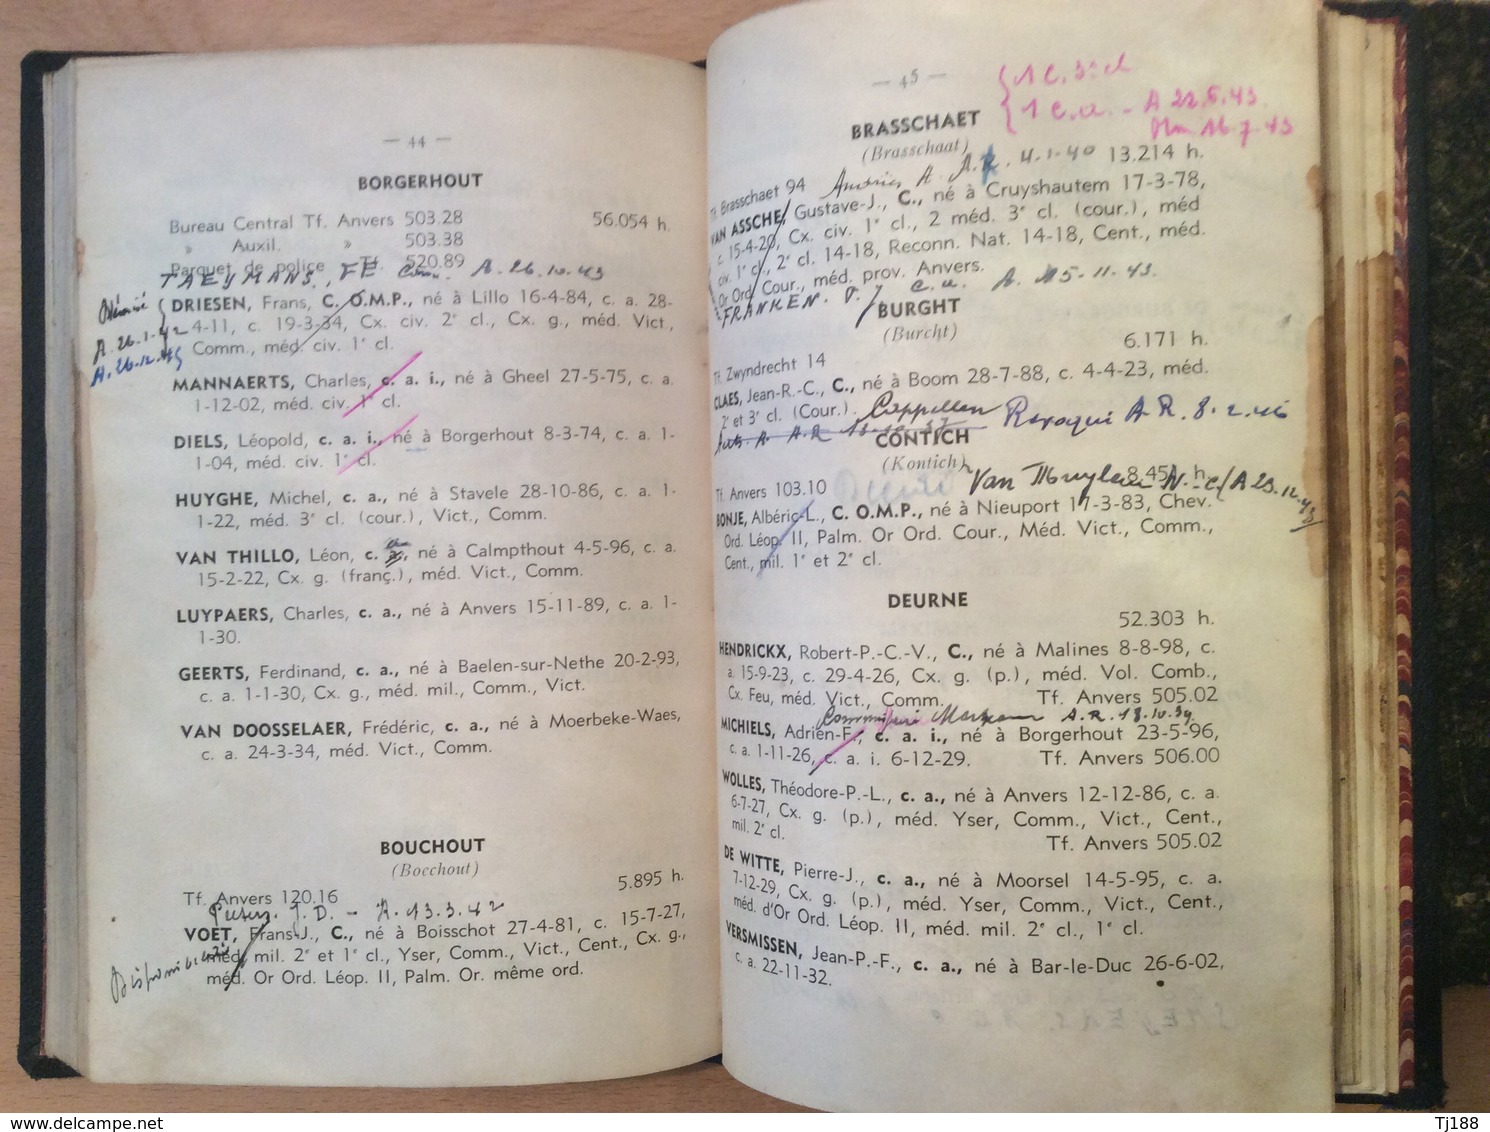 — 44 —
BORGERHOUT
Bureau Central Tf. Anvers 503.28
56.054 h.
» Auxil. » 503.38
Parquet de police Tf. 520.89
TAEYMANS, FE A. 26.10.43
DRIESEN, Frans, C. O.M.P., né à Lillo 16-4-84, c. a. 28-
4-11, c. 19-3-34, Cx. civ. 2e cl., Cx. g., méd. Vict.,
Comm., méd. civ. 1e cl.
A. 26.1.42
A. 26.12.45
MANNAERTS, Charles, c. a. i., né à Gheel 27-5-75, c. a.
1-12-02, méd. civ. 1e cl.
DIELS, Léopold, c. a. i., né à Borgerhout 8-3-74, c. a. 1-
1-04, méd. civ. 1e cl.
HUYGHE, Michel, c. a., né à Stavele 28-10-86, c. a. 1-
1-22, méd. 3e cl. (cour.), Vict., Comm.
VAN THILLO, Léon, c. a., né à Calmpthout 4-5-96, c. a.
15-2-22, Cx. g. (franç.), méd. Vict., Comm.
LUYPAERS, Charles, c. a., né à Anvers 15-11-89, c. a. 1-
1-30.
GEERTS, Ferdinand, c. a., né à Baelen-sur-Nethe 20-2-93,
c. a. 1-1-30, Cx. g., méd. mil., Comm., Vict.
VAN DOOSSELAER, Frédéric, c. a., né à Moerbeke-Waes,
c. a. 24-3-34, méd. Vict., Comm.
BOUCHOUT
(Boechout)
5.895 h.
Tf. Anvers 120.16
J. D. - A. 13.3.42
VOET, Frans-J., C., né à Boisschot 27-4-81, c. 15-7-27,
méd. mil. 2e et 1e cl., Yser, Comm., Vict., Cent., Cx. g.,
méd. Or Ord. Léop. II, Palm. Or. même ord.
— 45 —
1 C. 3e cl
1 c.a. - A 22.6.43.
16.7.43
BRASSCHAET
(Brasschaat)
13.214 h.
Tf. Brasschaet 94
A. A.R. 4-1-40
VAN ASSCHE, Gustave-J., C., né à Cruyshautem 17-3-78,
c. 15-4-20, Cx. civ. 1e cl., 2 méd. 3e cl. (cour.), méd
civ. 1e cl., 2e cl. 14-18, Reconn. Nat. 14-18, Cent., méd.
Or Ord. Cour., méd. prov. Anvers.
FRANKEN. c.a. A. 15-11-43.
BURGHT
(Burcht)
6.171 h.
Tf. Zwyndrecht 14
CLAES, Jean-R.-C., C., né à Boom 28-7-88, c. 4-4-23, méd.
2e et 3e cl. (Cour.). Cappellen
A.R. 8.2.46
CONTICH
(Kontich)
8.45 h.
Tf. Anvers 103.10
Van A 23.12.43
BONJE, Albéric-L., C. O.M.P., né à Nieuport 17-3-83, Chev.
Ord. Léop. II, Palm. Or Ord. Cour., Méd. Vict., Comm.,
Cent., mil. 1e et 2e cl.
DEURNE
52.303 h.
HENDRICKX, Robert-P.-C.-V., C., né à Malines 8-8-98, c.
a. 15-9-23, c. 29-4-26, Cx. g. (p.), méd. Vol. Comb.,
Cx. Feu, méd. Vict., Comm. Tf. Anvers 505.02
A.R. 13.10.39
MICHIELS, Adrien-F., c. a. i., né à Borgerhout 23-5-96,
c. a. 1-11-26, c. a. i. 6-12-29. Tf. Anvers 506.00
WOLLES, Théodore-P.-L., c. a., né à Anvers 12-12-86, c. a.
6-7-27, Cx. g. (p.), méd. Yser, Comm., Vict., Cent.,
mil. 2e cl. Tf. Anvers 505.02
DE WITTE, Pierre-J., c. a., né à Moorsel 14-5-95, c. a.
7-12-29, Cx. g. (p.), méd. Yser, Comm., Vict., Cent.,
méd. d'Or Ord. Léop. II, méd. mil. 2e cl., 1e cl.
VERSMISSEN, Jean-P.-F., c. a., né à Bar-le-Duc 26-6-02,
c. a. 22-11-32.
www.delcampe.net
Tj188